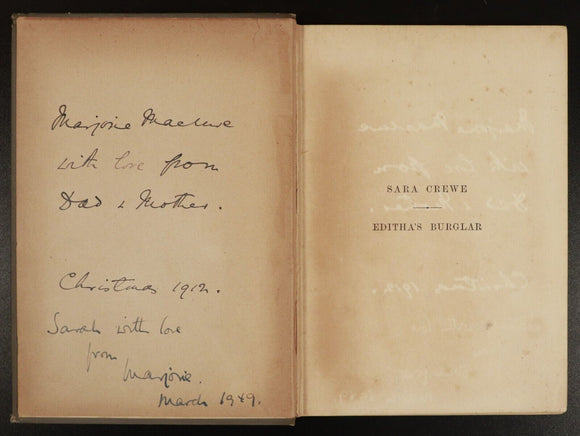 Marjorie Maclure
with love from
Dad & Mother.
Christmas 1912.
Sarah with love
from
Marjorie.
March 1949.
SARA CREWE
EDITHA'S BURGLAR